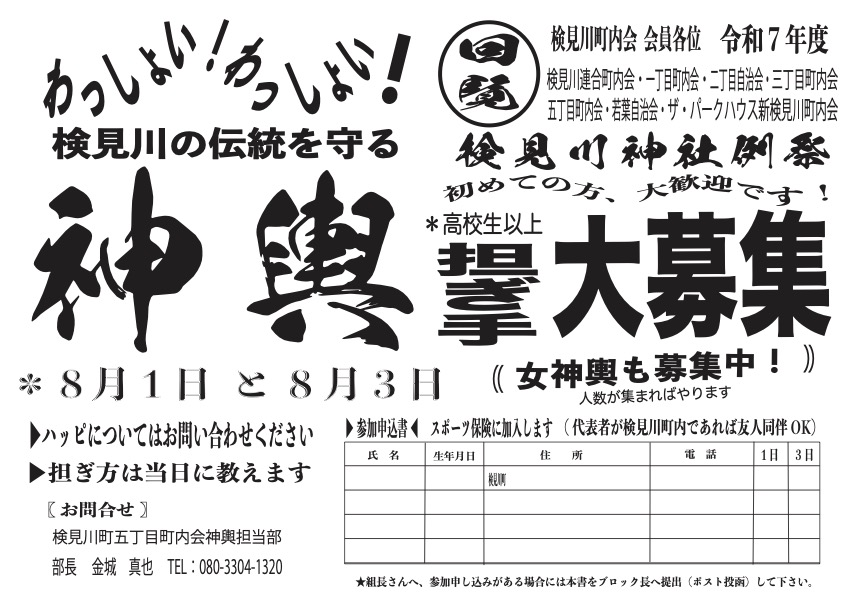 わっしょい！わっしょい！
検見川の伝統を守る
神輿
＊８月１日 と ８月３日
回覧
検見川町内会 会員各位　令和７年度
検見川連合町内会・一丁目町内会・二丁目自治会・三丁目町内会
五丁目町内会・若葉自治会・ザ・パークハウス新検見川町内会
検見川神社例祭
初めての方、大歓迎です！
＊高校生以上
担ぎ手
大募集
⸨ 女神輿も募集中！ ⸩
人数が集まればやります
▶ハッピについてはお問い合わせください
▶担ぎ方は当日に教えます
〘 お問合せ 〙
検見川町五丁目町内会神輿担当部
部長　金城　真也　TEL：080-3304-1320
▶参加申込書◀　スポーツ保険に加入します（代表者が検見川町内であれば友人同伴 OK）
氏　名　生年月日　住　所　電　話　1日　3日
検見川町
★組長さんへ、参加申し込みがある場合には本書をブロック長へ提出（ポスト投函）して下さい。